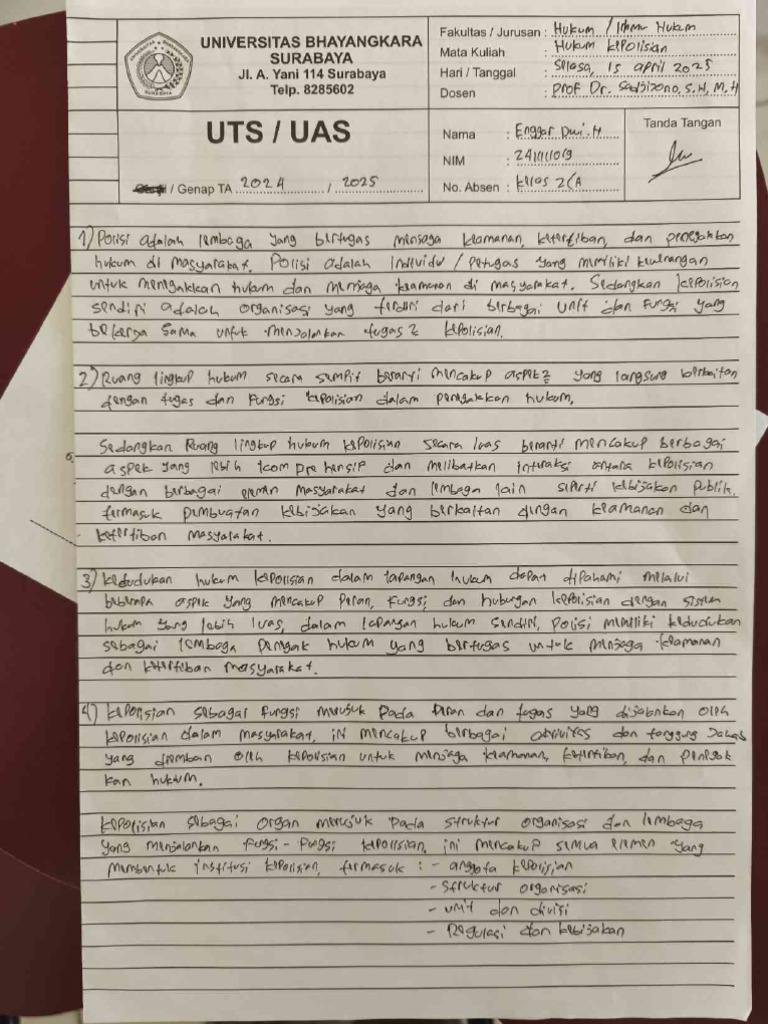 UNIVERSITAS BHAYANGKARA
SURABAYA
Jl. A. Yani 114 Surabaya
Telp. 8285602
UTS / UAS
/ Genap TA 2024 / 2025
Fakultas / Jurusan : Hukum / Ilmu Hukum
Mata Kuliah : Hukum kepolisian
Hari / Tanggal : Selasa, 15 april 2025
Dosen : Prof Dr. Sadjijono, S.H, M.H
Nama : Enggar Dwi. H
NIM
No. Absen : kelas 2/A
Tanda Tangan
1) Polisi adalah lembaga yang bertugas menjaga keamanan, ketertiban, dan penegakkan
hukum di masyarakat. Polisi adalah individu / petugas yang memiliki kewenangan
untuk menegakkan hukum dan menjaga keamanan di masyarakat. Sedangkan kepolisian
sendiri adalah organisasi yang terdiri dari berbagai unit dan fungsi yang
bekerja sama untuk menjalankan tugas2 kepolisian.
2) Ruang lingkup hukum secara sempit berarti mencakup aspek2 yang langsung berkaitan
dengan tugas dan fungsi kepolisian dalam penegakkan hukum.
Sedangkan Ruang lingkup hukum kepolisian secara luas berarti mencakup berbagai
aspek yang lebih komprehensif dan melibatkan interaksi antara kepolisian
dengan berbagai elemen masyarakat dan lembaga lain seperti kebijakan publik,
termasuk pembuatan kebijakan yang berkaitan dengan keamanan dan
ketertiban masyarakat.
3) kedudukan hukum kepolisian dalam lapangan hukum dapat dipahami melalui
beberapa aspek yang mencakup peran, fungsi, dan hubungan kepolisian dengan sistem
hukum yang lebih luas, dalam lapangan hukum sendiri, polisi memiliki kedudukan
sebagai lembaga penegak hukum yang bertugas untuk menjaga keamanan
dan ketertiban masyarakat.
4) kepolisian sebagai fungsi merujuk pada peran dan tugas yang dijalankan oleh
kepolisian dalam masyarakat. ini mencakup berbagai aktivitas dan tanggung jawab
yang diemban oleh kepolisian untuk menjaga keamanan, ketertiban, dan penegak
kan hukum.
kepolisian sebagai organ merujuk pada struktur organisasi dan lembaga
yang menjalankan fungsi - fungsi kepolisian, ini mencakup semua elemen yang
membentuk institusi kepolisian, termasuk : - anggota kepolisian
- struktur organisasi
- unit dan divisi
- Regulasi dan kebijakan